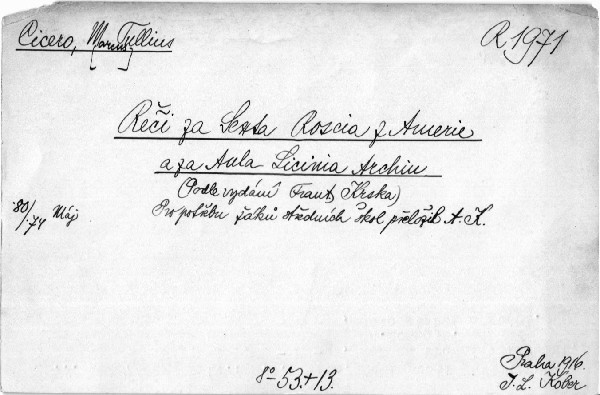 Cicero, [Marcus] Tullius
R 1971
Řeči za Sexta Roscia z Amerie
a za Aula Licinia Archiu
(Podle vydání Frant. Krska)
Pro potřebu žáků středních škol přeložil A. K.
80/1.74 Máj
8° - 53 + 13.
Praha 1916.
I. L. Kober